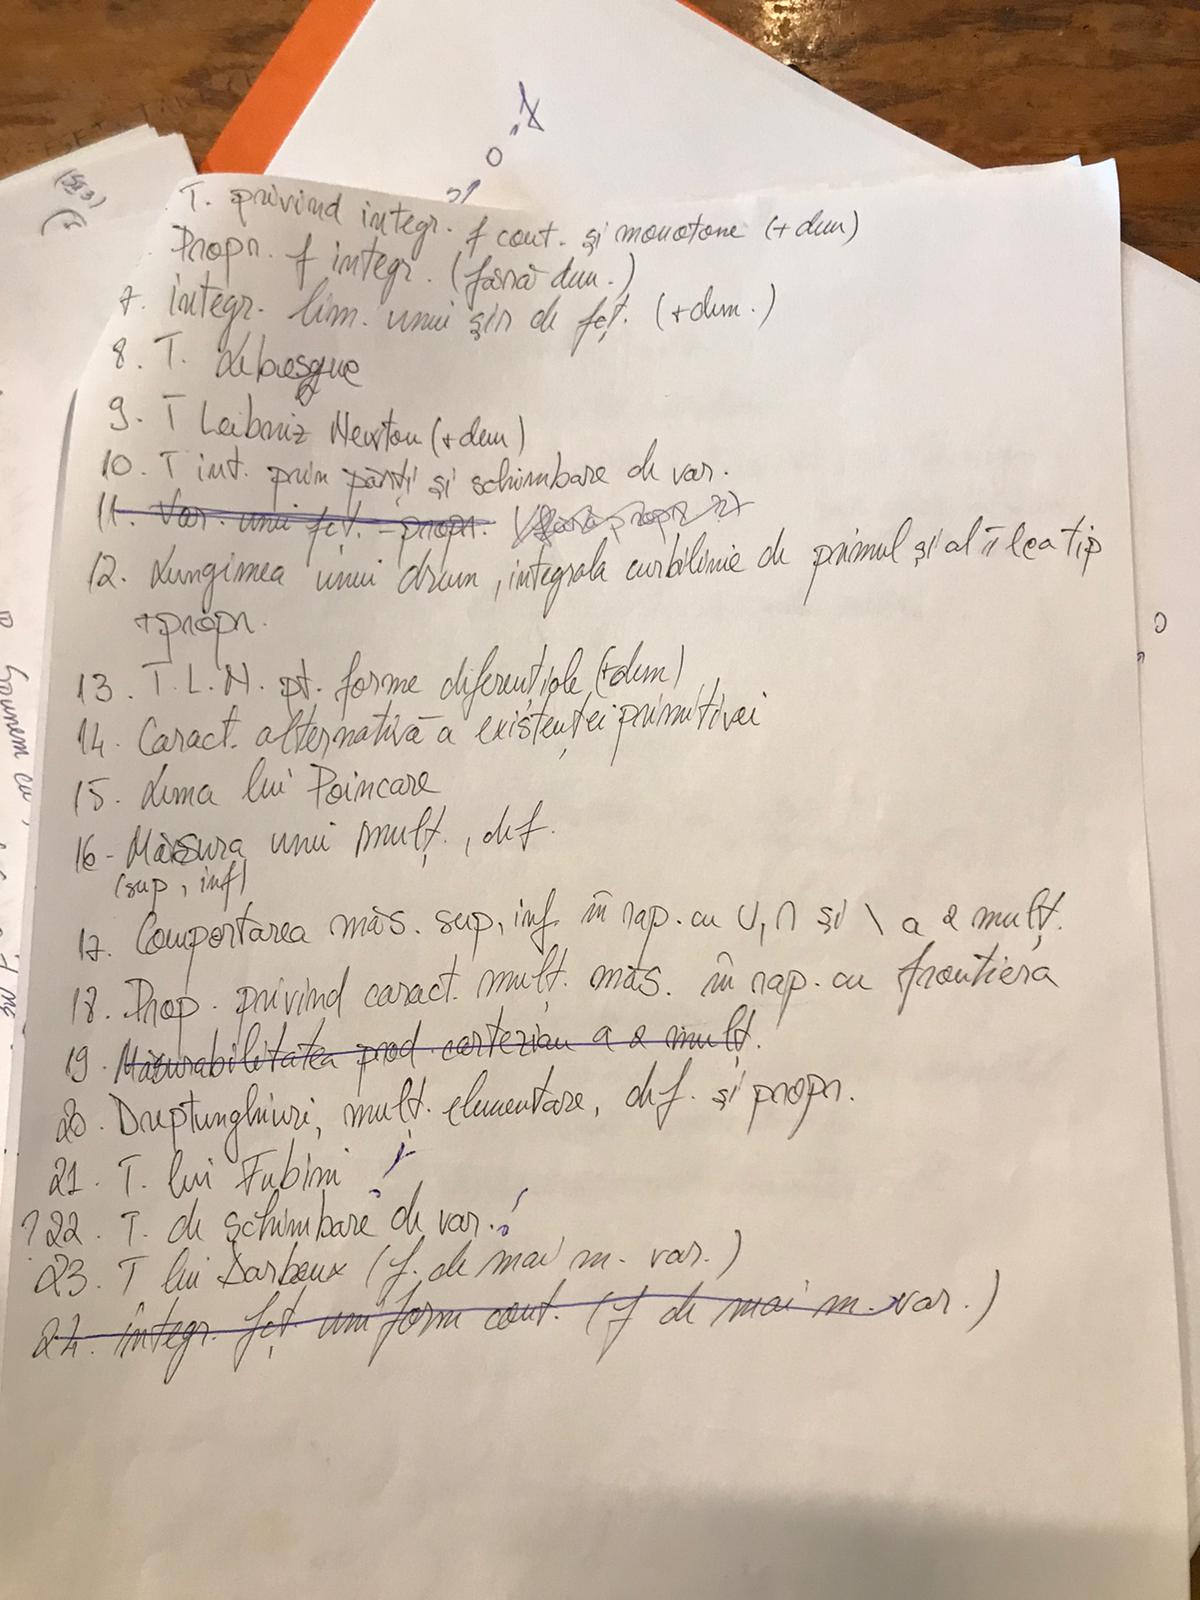 T. privind integr. f cont. și monotone (+dem)
Propr. f integr. (fără dem.)
7. integr. lim. unui șir de fct. (+dem.)
8. T. Lebesgue
9. T Leibniz Newton (+dem)
10. T int. prin părți și schimbare de var.
11. Var. unei fct. - propr.
12. Lungimea unui drum, integrala curbilinie de primul și al II lea tip
+propr.
13. T.L.N. pt. forme diferențiale (+dem)
14. Caract. alternativă a existenței primitivei
15. Lema lui Poincare
16- Măsura unei mulț., def.
(sup, inf)
17. Comportarea măs. sup, inf. în rap. cu ∪, ∩ și \ a 2 mulț.
18. Prop. privind caract. mulț. măs. în rap. cu frontiera
19. Măsurabilitatea prod cartezian a 2 mulț.
20. Dreptunghiuri, mulț. elementare, def. și propr.
21. T. lui Fubini !
?22. T. de schimbare de var. !
23. T lui Darboux (f. de mai m. var.)
24. integr. fct. uniform cont. (f de mai m. var.)